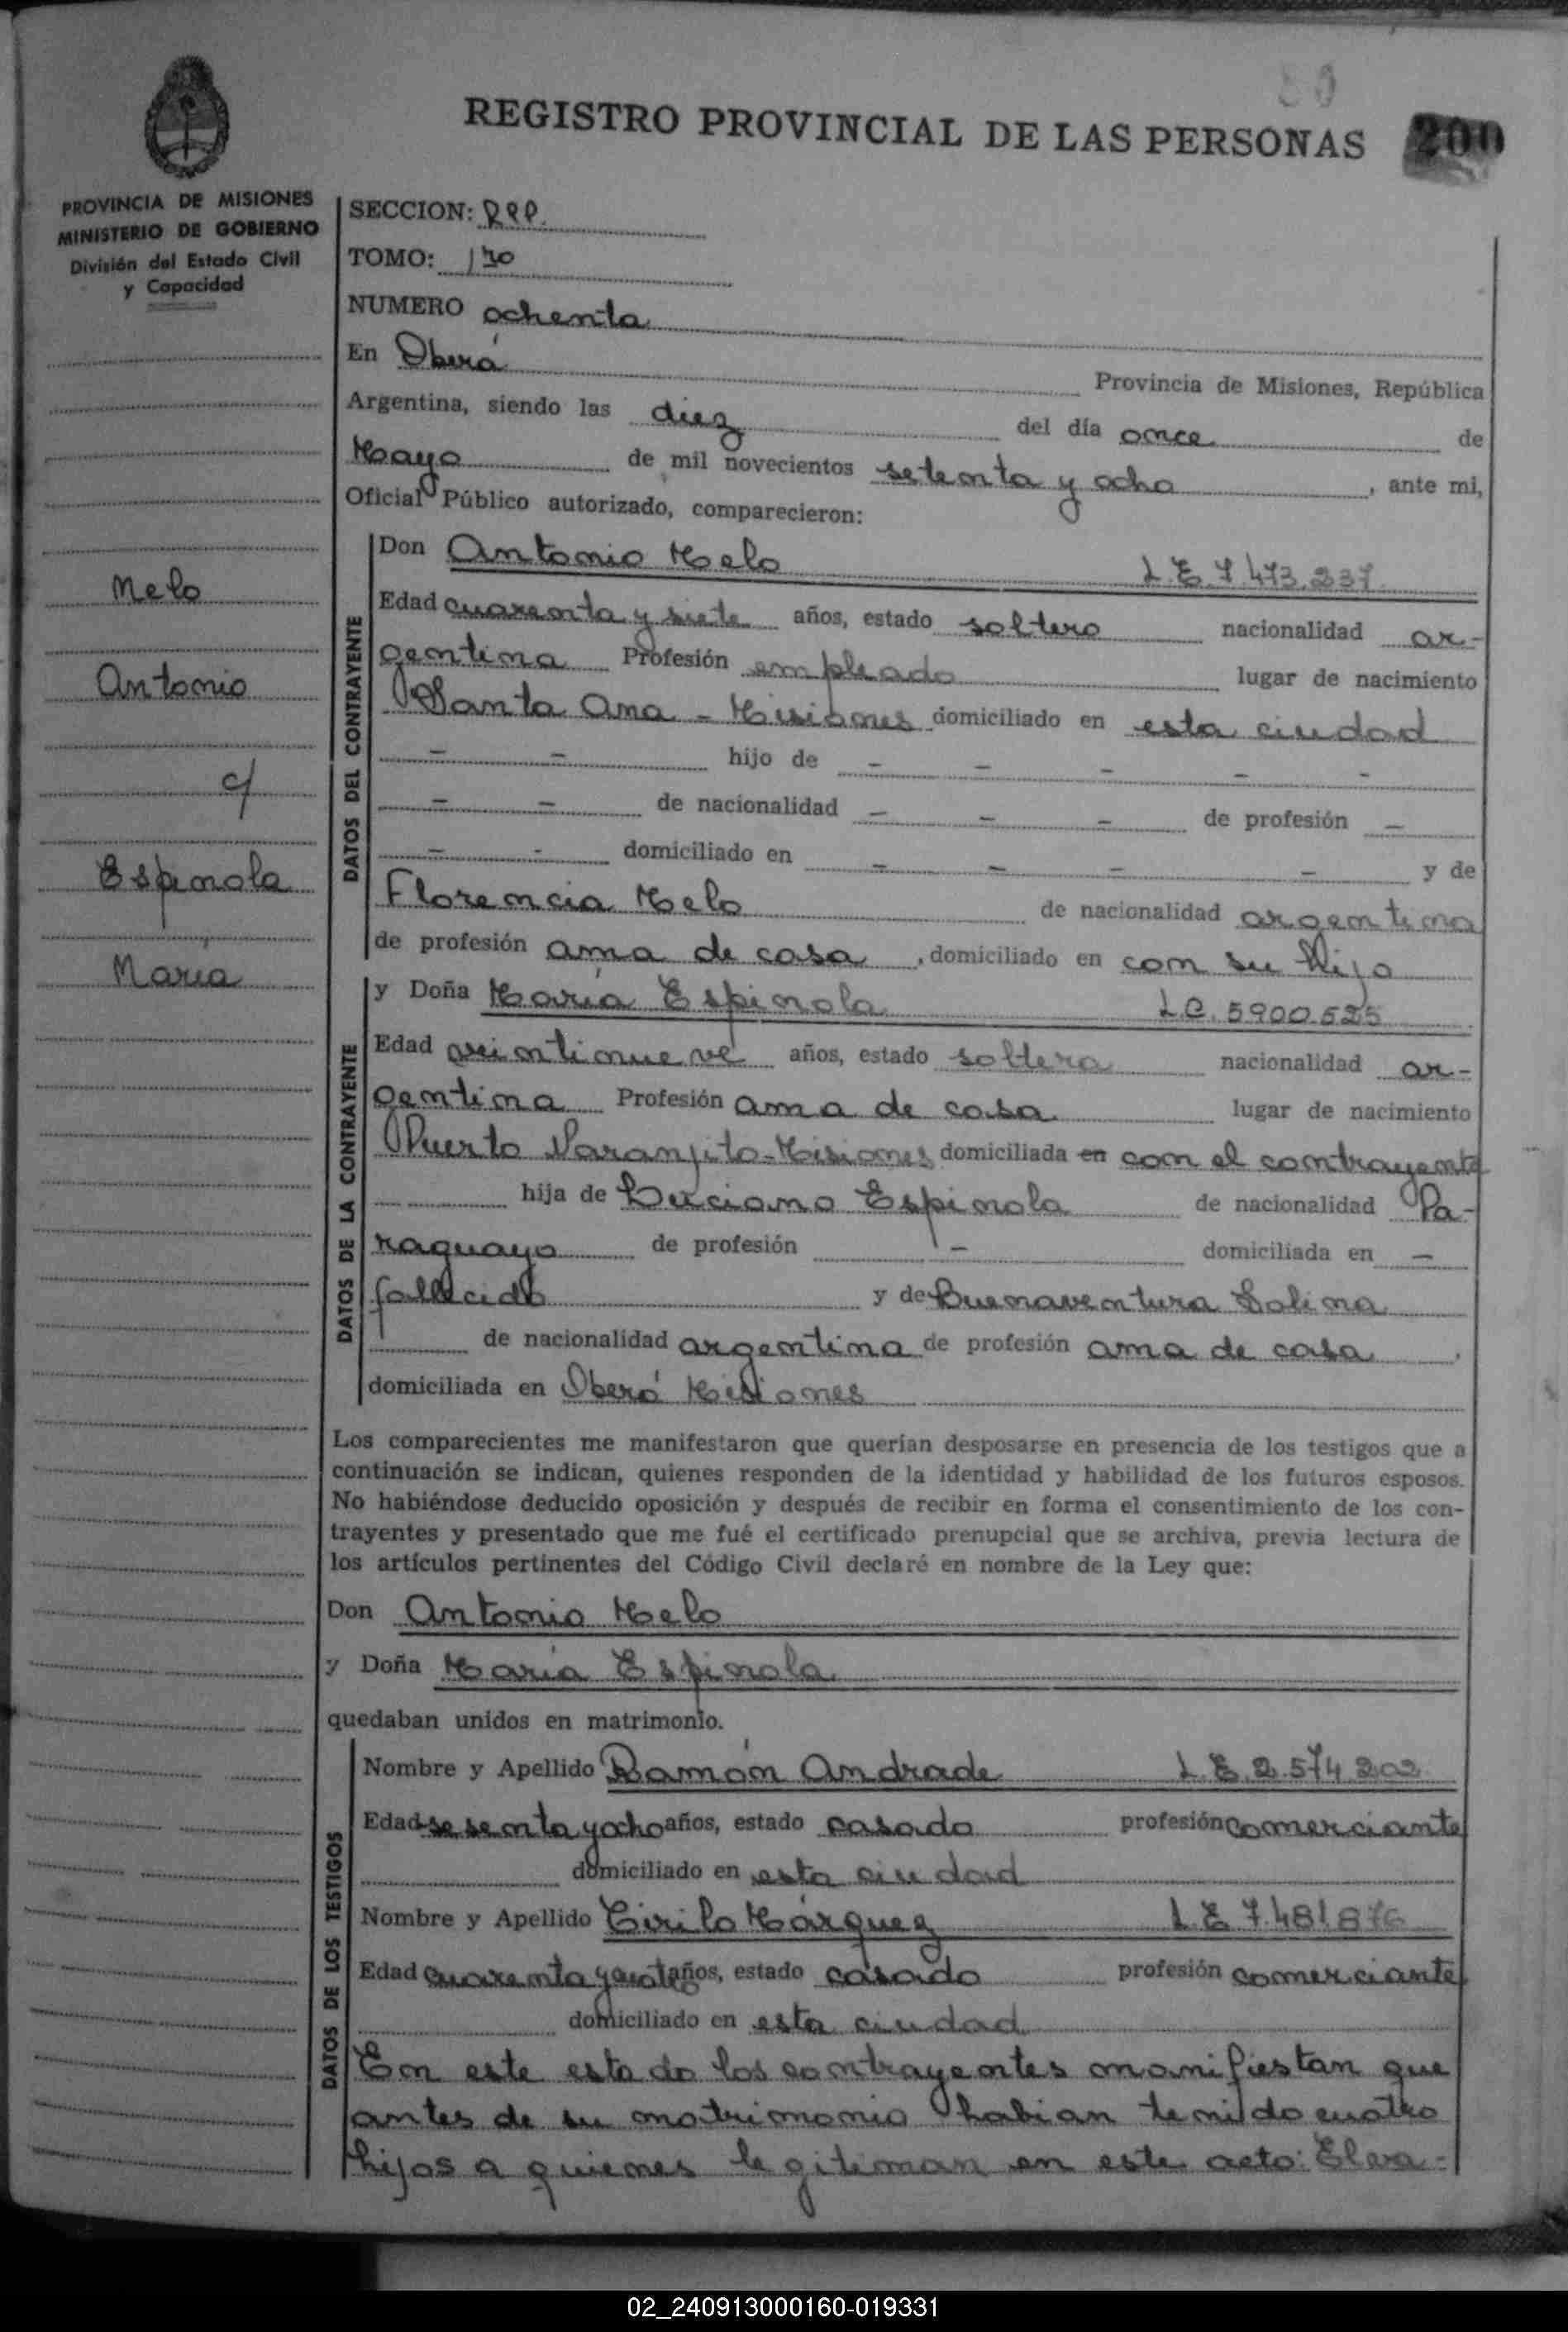 80
REGISTRO PROVINCIAL DE LAS PERSONAS 200
PROVINCIA DE MISIONES
MINISTERIO DE GOBIERNO
División del Estado Civil
y Capacidad
Melo
Antonio
c/
Espinola
María
SECCION: RPP.
TOMO: 1º
NUMERO ochenta
En Oberá Provincia de Misiones, República
Argentina, siendo las diez del día once de
Mayo de mil novecientos setenta y ocho, ante mi,
Oficial Público autorizado, comparecieron:
DATOS DEL CONTRAYENTE
Don Antonio Melo L.E 7.473.237
Edad cuarenta y siete años, estado soltero nacionalidad ar-
gentina Profesión empleado lugar de nacimiento
Santa Ana - Misiones domiciliado en esta ciudad
- - hijo de - - - - -
- - de nacionalidad - - - de profesión -
- - domiciliado en - - - - y de
Florencia Melo de nacionalidad argentina
de profesión ama de casa, domiciliado en con su hijo
DATOS DE LA CONTRAYENTE
y Doña María Espinola L.C. 5.900.525
Edad veintinueve años, estado soltera nacionalidad ar-
gentina Profesión ama de casa lugar de nacimiento
Puerto Naranjito-Misiones domiciliada en con el contrayente
hija de Luciano Espinola de nacionalidad Pa-
raguayo de profesión - domiciliada en -
fallecido y de Buenaventura Solina
de nacionalidad argentina de profesión ama de casa,
domiciliada en Oberá Misiones
Los comparecientes me manifestaron que querían desposarse en presencia de los testigos que a
continuación se indican, quienes responden de la identidad y habilidad de los futuros esposos.
No habiéndose deducido oposición y después de recibir en forma el consentimiento de los con-
trayentes y presentado que me fué el certificado prenupcial que se archiva, previa lectura de
los artículos pertinentes del Código Civil declaré en nombre de la Ley que:
Don Antonio Melo
y Doña María Espinola
quedaban unidos en matrimonio.
DATOS DE LOS TESTIGOS
Nombre y Apellido Ramón Andrade L.E. 2.574.202
Edad sesenta y ocho años, estado casado profesión comerciante
domiciliado en esta ciudad
Nombre y Apellido Cirilo Márquez L.E 7.481.876
Edad cuarenta y cuatro años, estado casado profesión comerciante
domiciliado en esta ciudad
En este estado los contrayentes manifiestan que
antes de su matrimonio habian tenido cuatro
hijos a quienes legitiman en este acto: Elva-
02_240913000160-019331